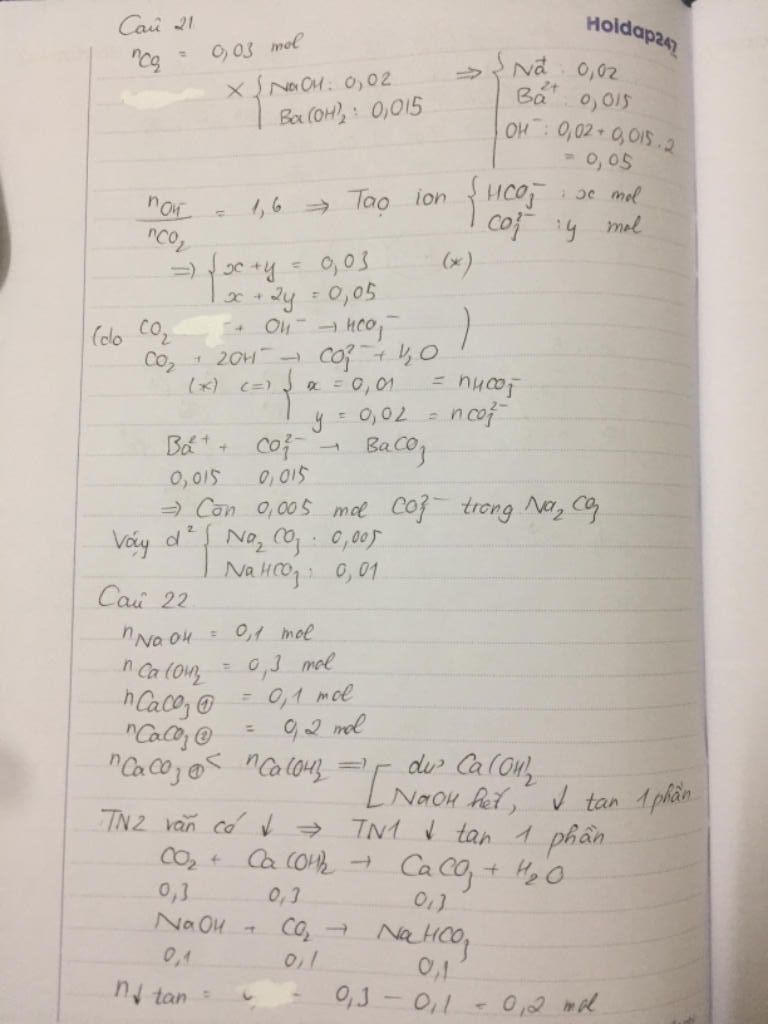 Câu 21
Hoidap247
nCO₂ = 0,03 mol
X { NaOH : 0,02 ⇒ { Na⁺ : 0,02
Ba(OH)₂ : 0,015 Ba²⁺ : 0,015
OH⁻ : 0,02 + 0,015.2
= 0,05
nOH⁻ / nCO₂ = 1,6 ⇒ Tạo ion { HCO₃⁻ : x mol
CO₃²⁻ : y mol
⇒ { x + y = 0,03 (*)
x + 2y = 0,05
(do CO₂ + OH⁻ → HCO₃⁻ )
CO₂ + 2OH⁻ → CO₃²⁻ + H₂O
(*) <=> { x = 0,01 = nHCO₃⁻
y = 0,02 = nCO₃²⁻
Ba²⁺ + CO₃²⁻ → BaCO₃
0,015 0,015
⇒ Còn 0,005 mol CO₃²⁻ trong Na₂CO₃
Vậy d² { Na₂CO₃ : 0,005
NaHCO₃ : 0,01
Câu 22
nNaOH = 0,1 mol
nCa(OH)₂ = 0,3 mol
nCaCO₃ ① = 0,1 mol
nCaCO₃ ② = 0,2 mol
nCaCO₃ ① < nCa(OH)₂ ⇒ [ dư Ca(OH)₂
NaOH hết, ↓ tan 1 phần
TN2 vẫn có ↓ ⇒ TN1 ↓ tan 1 phần
CO₂ + Ca(OH)₂ → CaCO₃ + H₂O
0,3 0,3 0,3
NaOH + CO₂ → NaHCO₃
0,1 0,1 0,1
n↓ tan = 0,3 - 0,1 = 0,2 mol